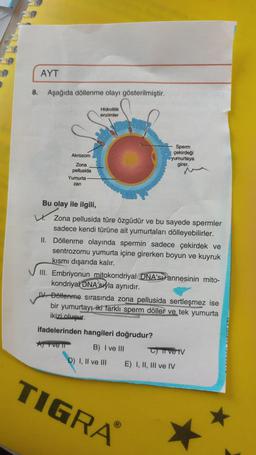 AYT
8. Aşağıda döllenme olayı gösterilmiştir.
Hidrolitik
enzimler
Sperm
çekirdeği
yumurtaya
girer.
Akrozom
Zona
pellusida
Yumurta
zarı
Bu olay ile ilgili,
I. Zona pellusida türe özgüdür ve bu sayede spermler
sadece kendi türüne ait yumurtaları dölleyebilirler.
II. Döllenme olayında spermin sadece çekirdek ve
sentrozomu yumurta içine girerken boyun ve kuyruk
kısmı dışarıda kalır.
III. Embriyonun mitokondriyal DNA'sı annesinin mito-
kondriyal DNA'sıyla aynıdır.
IV. Döllenme sırasında zona pellusida sertleşmez ise
bir yumurtayı iki farklı sperm döller ve tek yumurta
ikizi oluşur.
ifadelerinden hangileri doğrudur?
A) I ve II B) I ve III C) II ve IV
D) I, II ve III E) I, II, III ve IV
TIGRA®